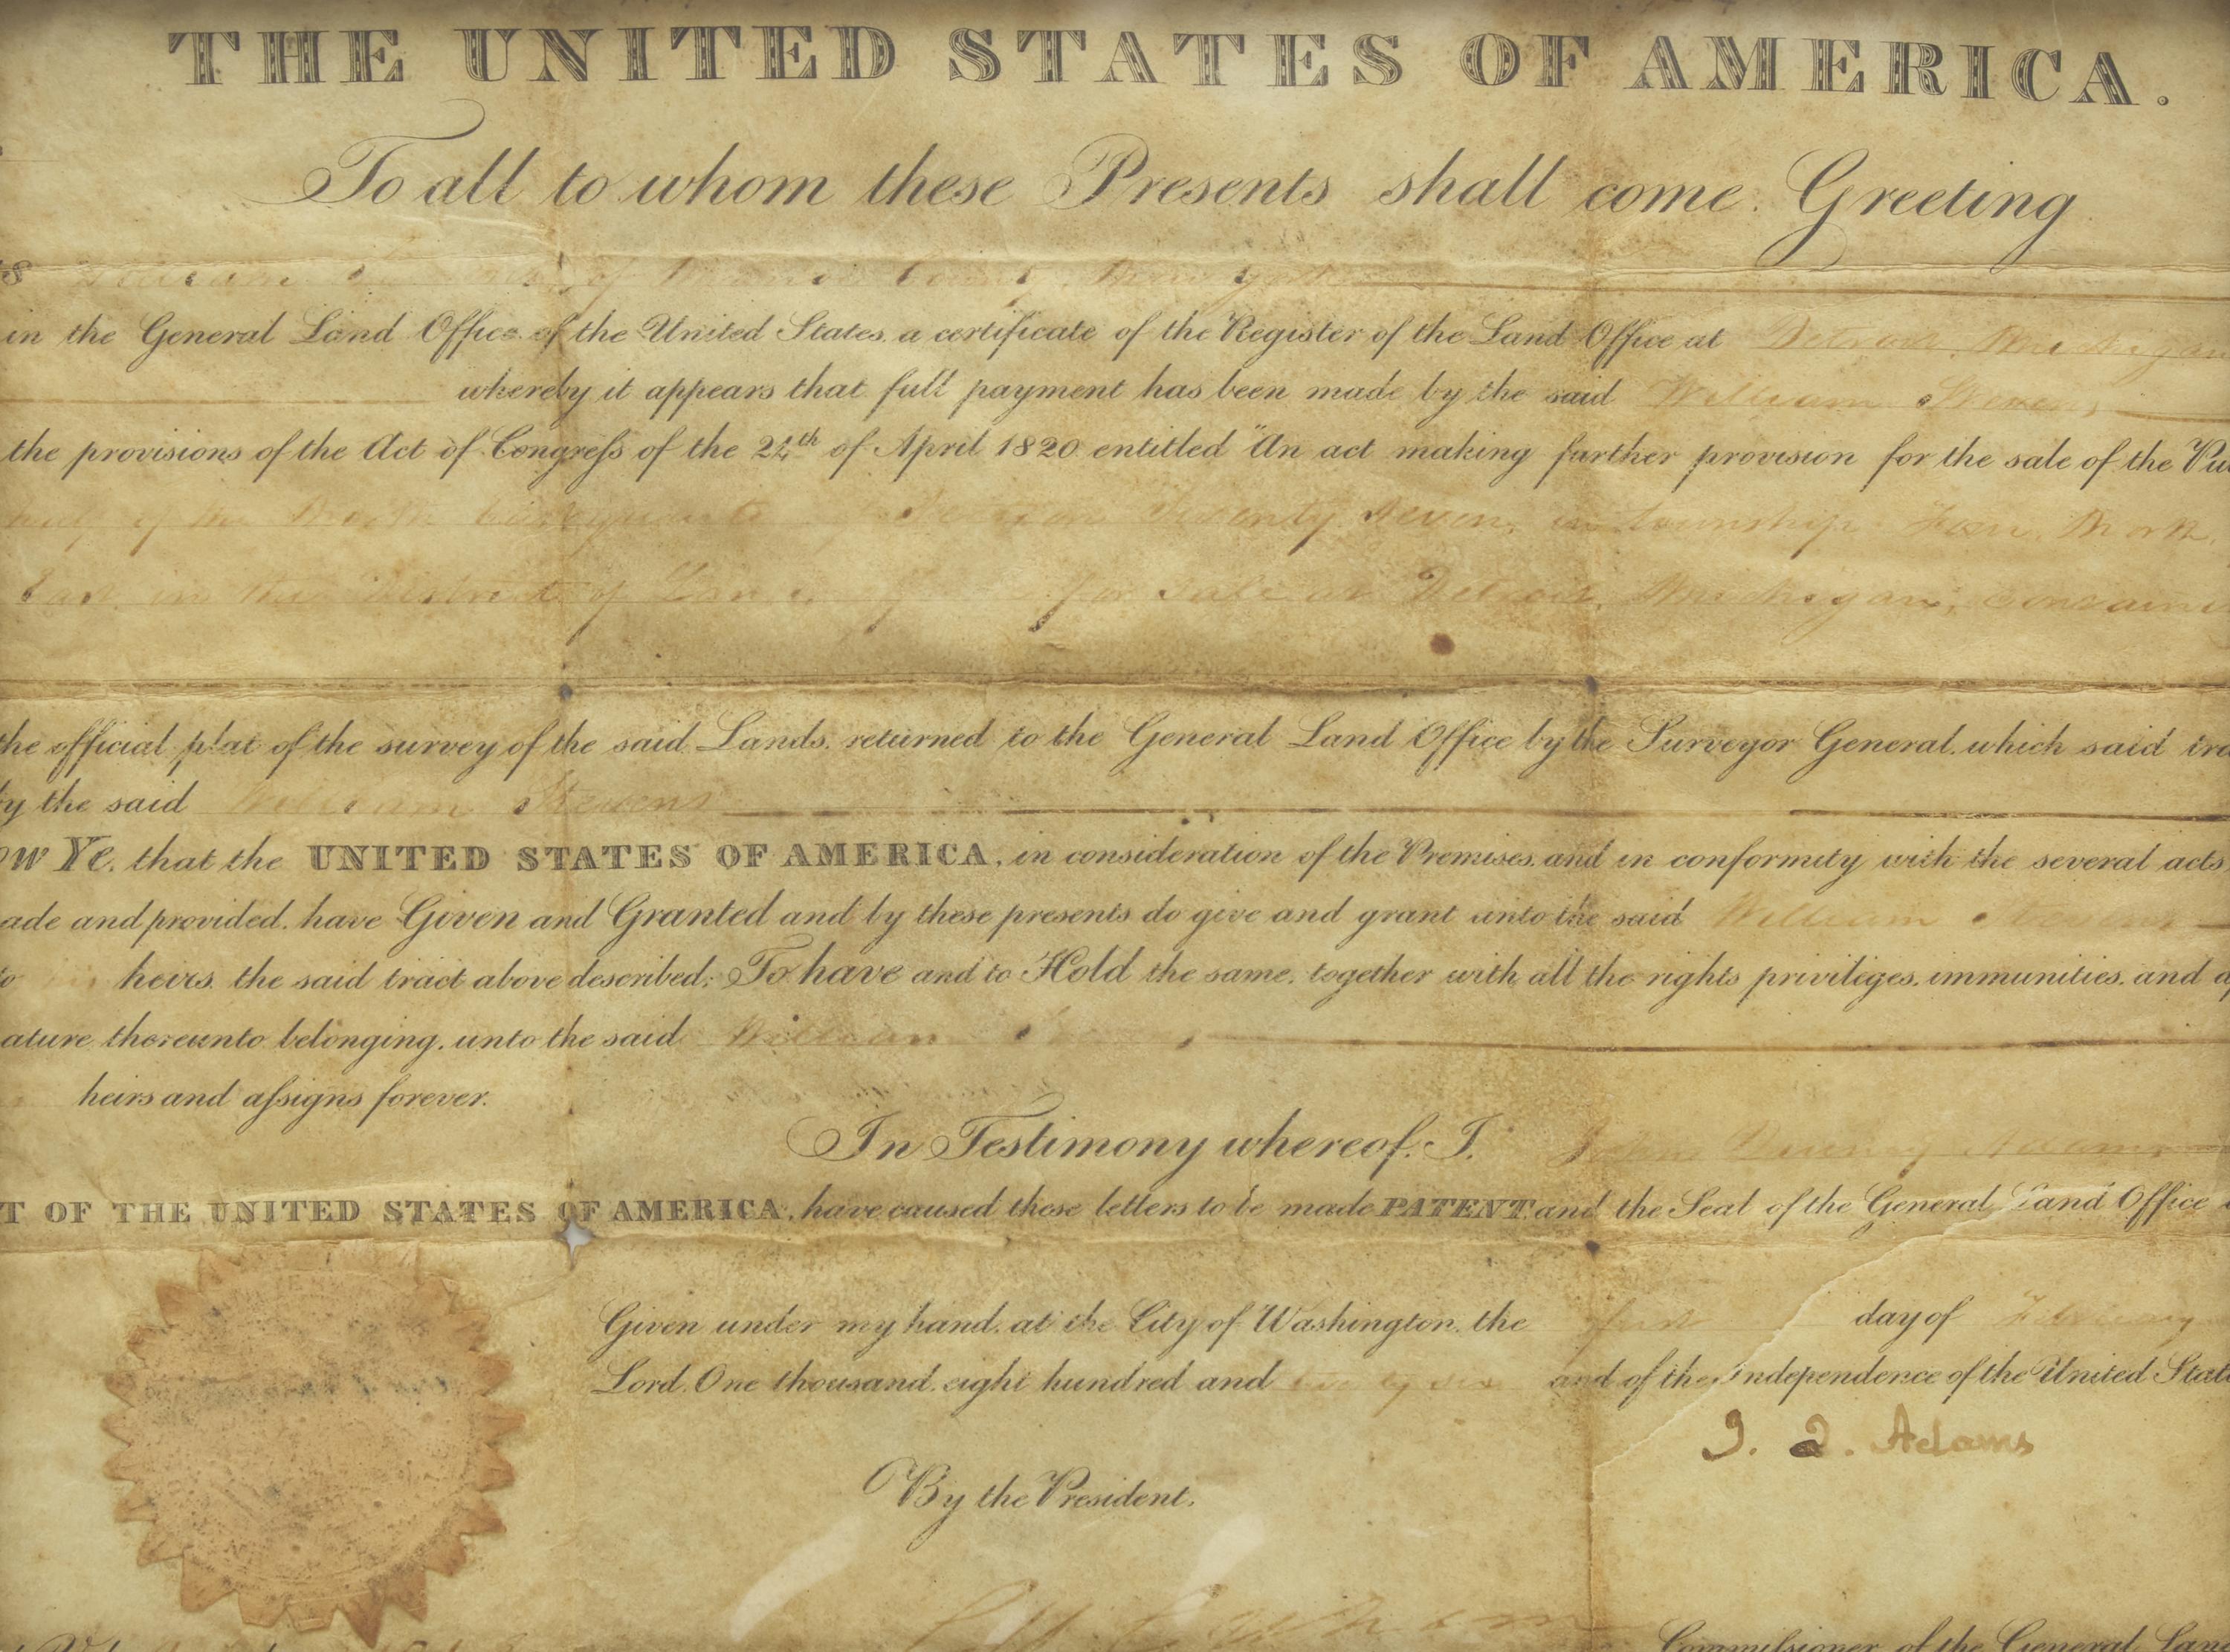 THE UNITED STATES OF AMERICA.
To all to whom these Presents shall come. Greeting
of County, New York
in the General Land Office of the United States, a certificate of the Register of the Land Office at Detroit, Michigan
whereby it appears that full payment has been made by the said William Stevens
the provisions of the Act of Congreſs of the 24th of April 1820. entitled "An act making further provision for the sale of the Pu
half of the North quarter of Section Twenty Seven, in township Four, North,
East, in the District of Lands for sale at Detroit, Michigan, contain
the official plat of the survey of the said Lands, returned to the General Land Office by the Surveyor General, which said tra
by the said William Stevens
ow Ye, that the UNITED STATES OF AMERICA, in consideration of the Premises, and in conformity with the several acts
ade and provided, have Given and Granted and by these presents do give and grant unto the said William Stevens
to his heirs, the said tract above described; To have and to Hold the same, together with all the rights priviliges, immunities, and ap
ature thereunto belonging, unto the said William
heirs and aſsigns forever.
In Testimony whereof, I, John Quincy Adams
T OF THE UNITED STATES OF AMERICA, have caused these letters to be made PATENT and the Seal of the General Land Office
Given under my hand, at the City of Washington, the first day of February
Lord, One thousand, eight hundred and twenty six and of the Independence of the United Stat
J. Q. Adams
By the President,
Commiſsioner of the General Lan